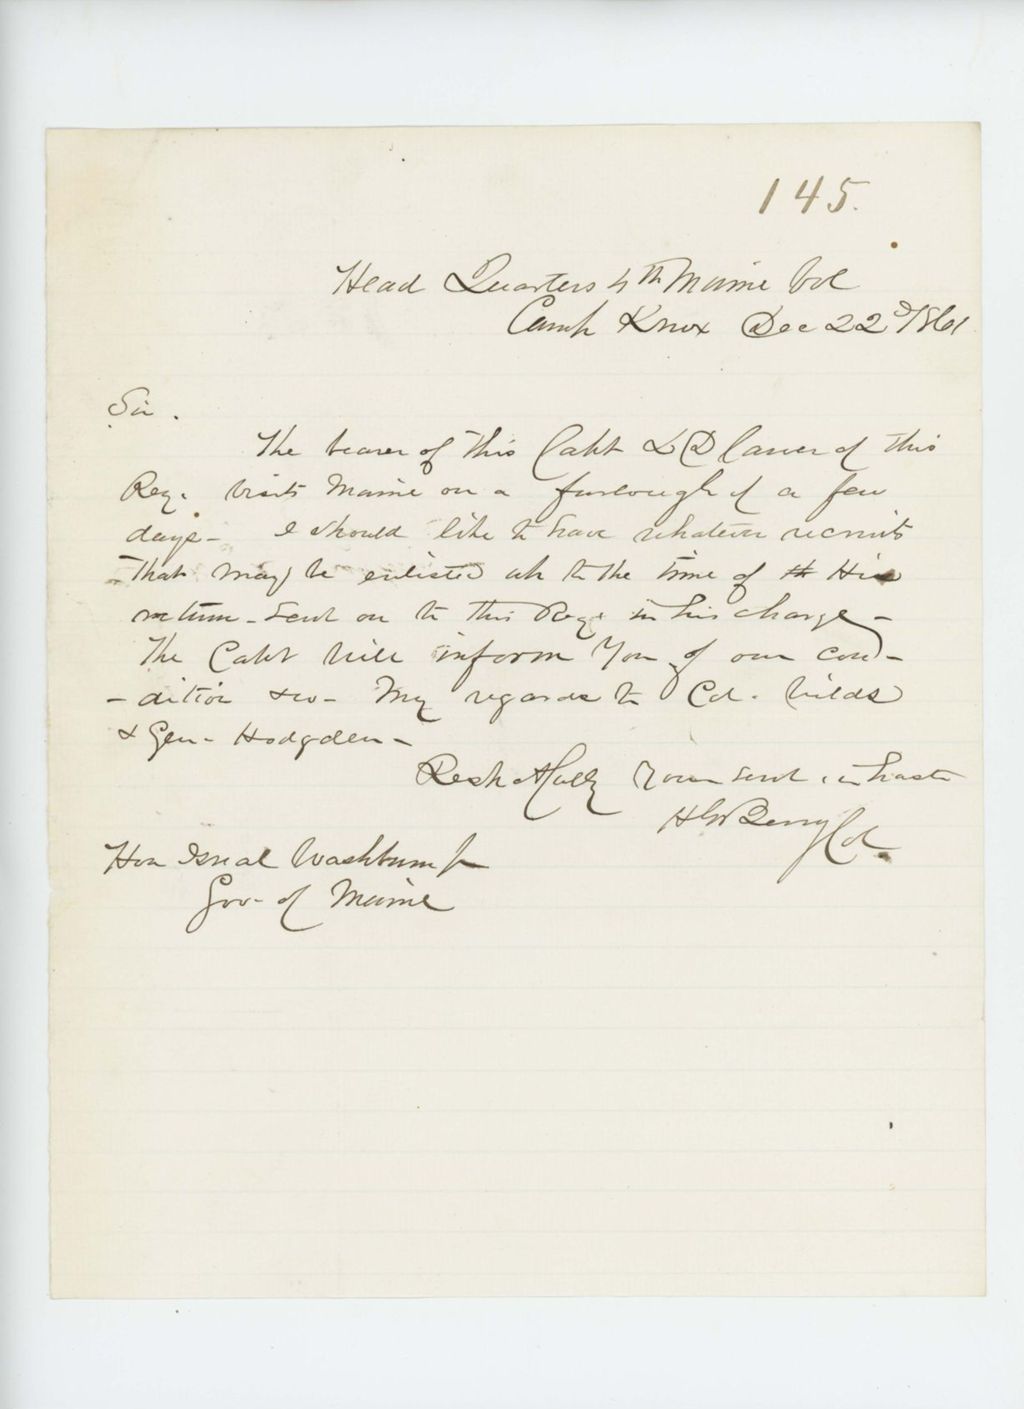 145.
Head Quarters 4th Maine Vol
Camp Knox Dec 22d/1861
Sir.
The bearer of This Capt L D Carver of this
Reg. visits Maine on a furlough of a few
days - I should like to have whatever recruits
- That may be enlisted up to the time of His
return - sent on to this Reg. in his charge -
The Capt will inform You of our con-
- dition &co - My regards to Col. Wilds
& Gen - Hodgden -
Respectfully Your servt in haste
H G Berry Col.
Hon Isreal Washburn Jr
Gov - of Maine